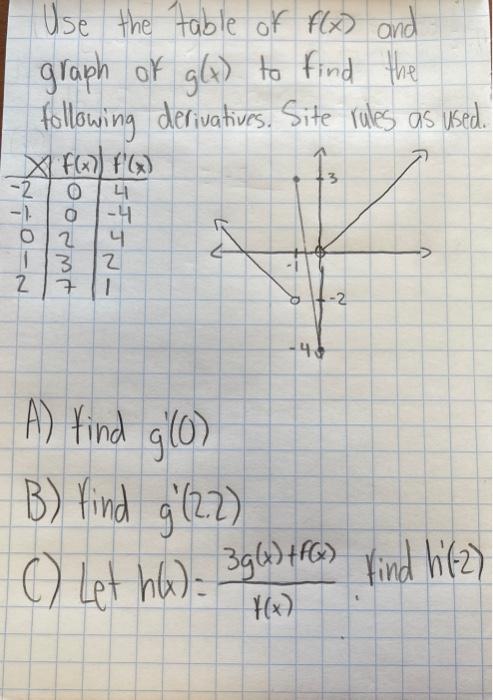 Use the table of f(x) and
graph of g(x) to find the
following derivatives. Site rules as used.
x f(x) f'(x)
-2 0 4
-1 0 -4
0 2 4
1 3 2
2 7 1
3
-1
-2
-4
A) find g'(0)
B) find g'(2.2)
C) Let h(x)= 3g(x)+f(x) / f(x) . find h'(-2)